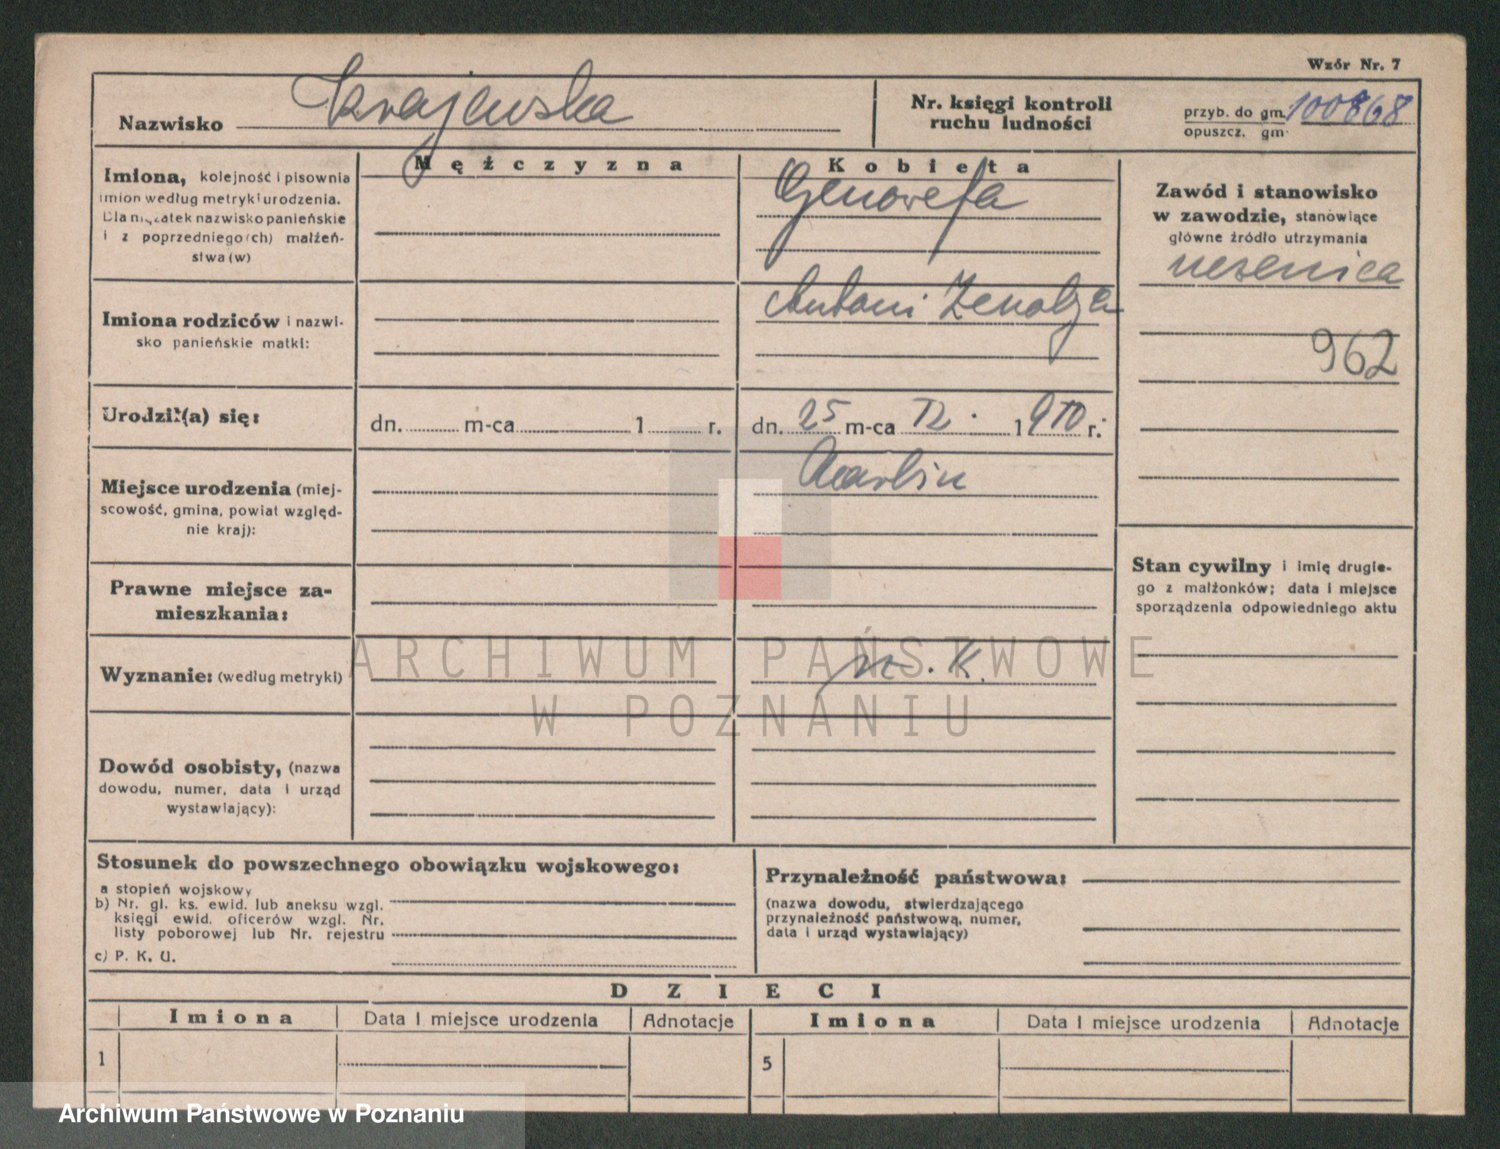 Wzór Nr. 7
Nazwisko Krajewska
Nr. księgi kontroli
ruchu ludności
przyb. do gm. 100868
opuszcz. gm.
Mężczyzna
Kobieta
Imiona, kolejność i pisownia
imion według metryki urodzenia.
Dla mężatek nazwisko panieńskie
i z poprzedniego(ch) małżeń-
stwa (w)
Genowefa
Zawód i stanowisko
w zawodzie, stanowiące
główne źródło utrzymania
uczenica
962
Imiona rodziców i nazwi-
sko panieńskie matki:
Antoni
Urodził(a) się:
dn. m-ca 1 r.
dn. 25 m-ca 12. 1910 r.
Miejsce urodzenia (miej-
scowość, gmina, powiat względ-
nie kraj):
Prawne miejsce za-
mieszkania:
Wyznanie: (według metryki)
r. K.
Dowód osobisty, (nazwa
dowodu, numer, data i urząd
wystawiający):
Stan cywilny i imię drugie-
go z małżonków; data i miejsce
sporządzenia odpowiedniego aktu
Stosunek do powszechnego obowiązku wojskowego:
a stopień wojskowy
b) Nr. gl. ks. ewid. lub aneksu wzgl.
księgi ewid. oficerów wzgl. Nr.
listy poborowej lub Nr. rejestru
c) P. K. U.
Przynależność państwowa:
(nazwa dowodu, stwierdzającego
przynależność państwową, numer,
data i urząd wystawiający)
DZIECI
Imiona Data i miejsce urodzenia Adnotacje Imiona Data i miejsce urodzenia Adnotacje
1 5
ARCHIWUM PAŃSTWOWE
W POZNANIU
Archiwum Państwowe w Poznaniu